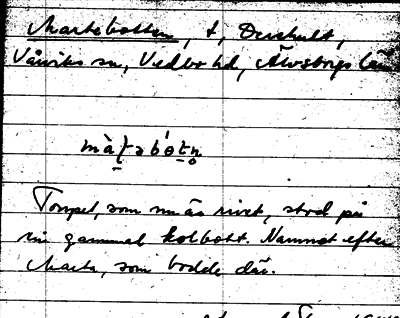 Martebotten, t, Dershult,
Vårviks sn, Vedbo hd, Älvsborgs län
Torpet, som nu är rivet, stod på
en gammal kolbott. Namnet efter
Marta, som bodde där.